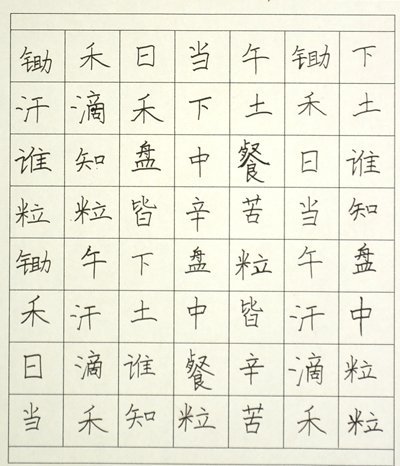 锄禾日当午锄下
汗滴禾下土禾土
谁知盘中餐日谁
粒粒皆辛苦当知
锄午下盘粒午盘
禾汗土中皆汗中
日滴谁餐辛滴粒
当禾知粒苦禾粒